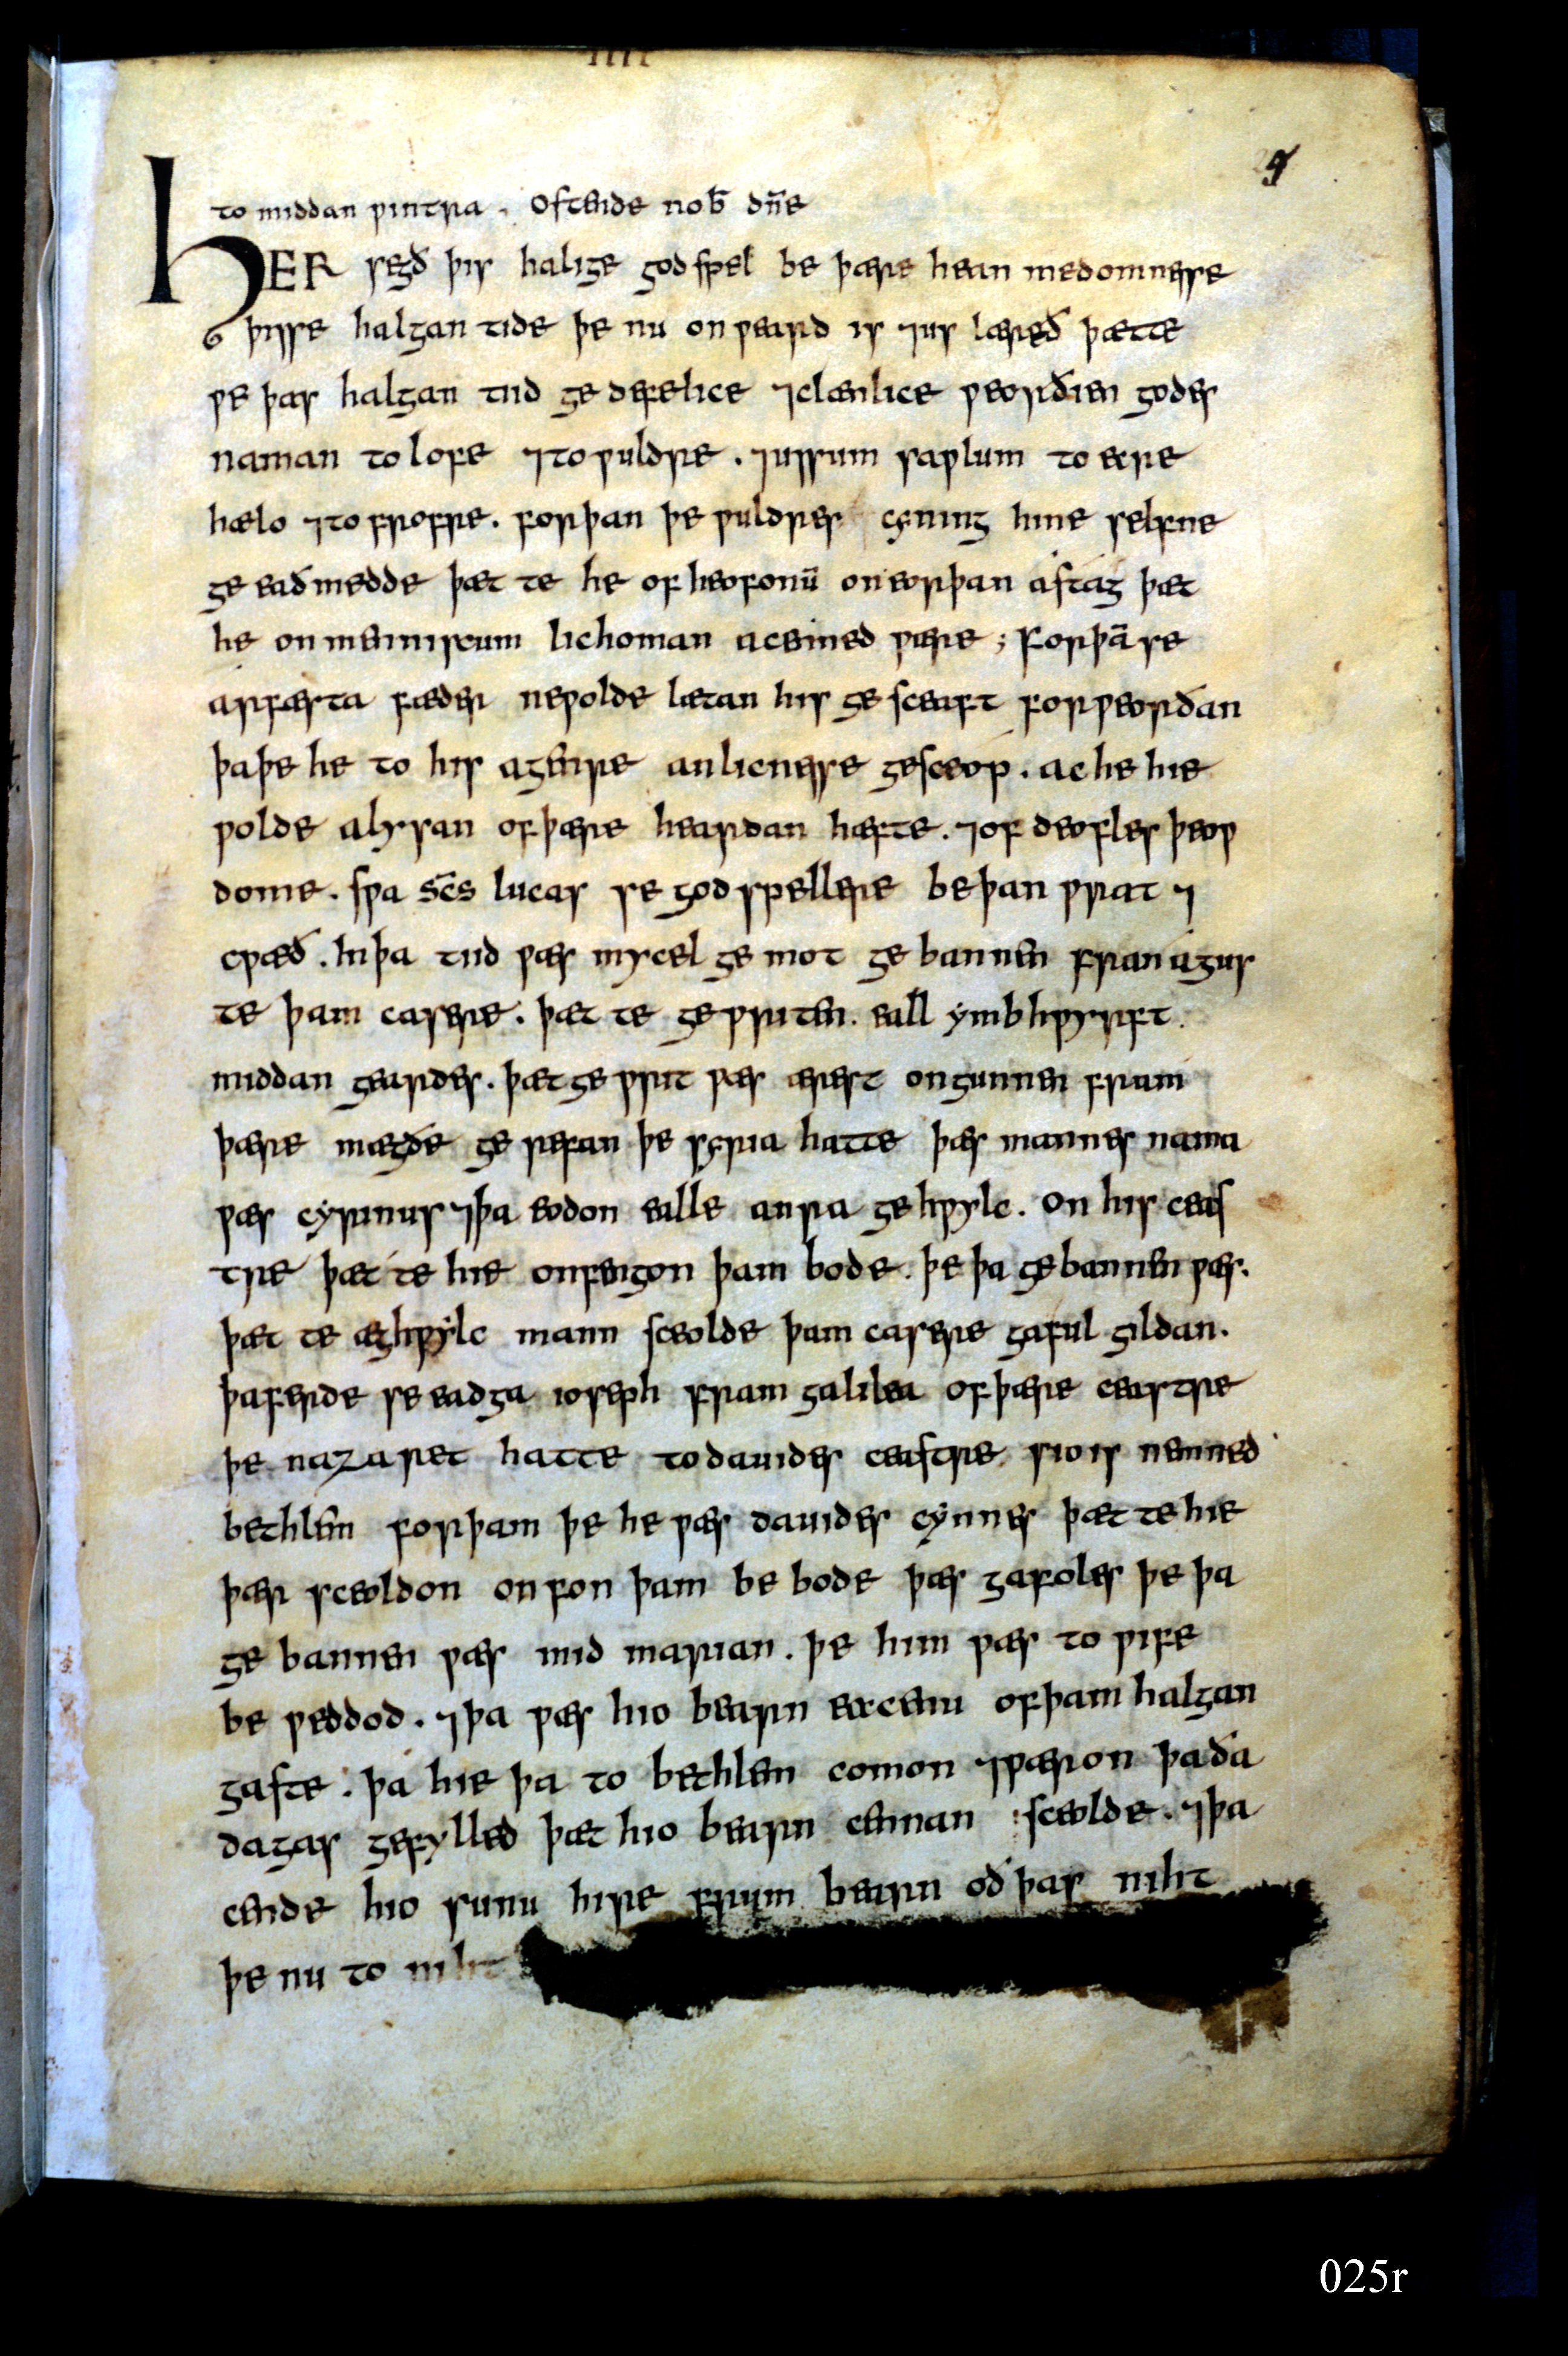 IIII
9
to middan ƿintra . Ostende nob̄ dn̄e
HER segð þis halige godspel be þære hean medomnesse
þisse halgan tide þe nu onƿeard is ⁊us læreð þætte
ƿe þas halgan tiid gedefelice ⁊clænlice ƿeorðien godes
naman to lofe ⁊to ƿuldre . ⁊ussum saƿlum to ecre
hælo ⁊to frofre . forþan þe ƿuldres cyning hine selfne
ge eaðmedde þæt te he of heofonū on eorþan astag þæt
he on menniscum lichoman acenned ƿære ; Forþā se
arfæsta fæder neƿolde lætan his ge sceaft forƿeorðan
þa þe he to his agenre anlicnesse gesceop . ac he hie
ƿolde alysan of þære heardan hæfte . ⁊of deofles þeoƿ
dome . sƿa sc̄s lucas se godspellere be þan ƿrat ⁊
cƿæð . In þa tiid ƿæs mycel ge mot ge bannen fran agus
te þam casere . þæt te ge ƿriten . eall ymbhƿyrft .
middan geardes . þæt ge ƿrit ƿæs ærest ongunnen fram
þære mægðe ge refan þe syria hatte þæs mannes nama
ƿæs cyrinus ⁊þa eodon ealle anra gehƿylc . On his ceas
tre þæt te hie onfengon þam bode . þe þa gebannen ƿæs .
þæt te æghƿylc mann sceolde þam casere gaful gildan .
þa ferde se eadga ioseph fram galilea of þære ceastre
þe nazaret hatte to dauides ceastre sio is nemned
bethlēm forþam þe he ƿæs dauides cynnes þæt te hie
þær sceoldon onfon þam be bode þæs gafoles þe þa
ge bannen ƿæs mid marian . þe him ƿæs to ƿife
be ƿeddod . ⁊þa ƿæs hio bearn eacenu of þam halgan
gaste . þa hie þa to bethlem comon ⁊ƿæron þa ða
dagas gefylled þæt hio bearn cennan sceolde . ⁊þa
cende hio sunu hire frum bearn oð þas niht
þe nu to niht
025r